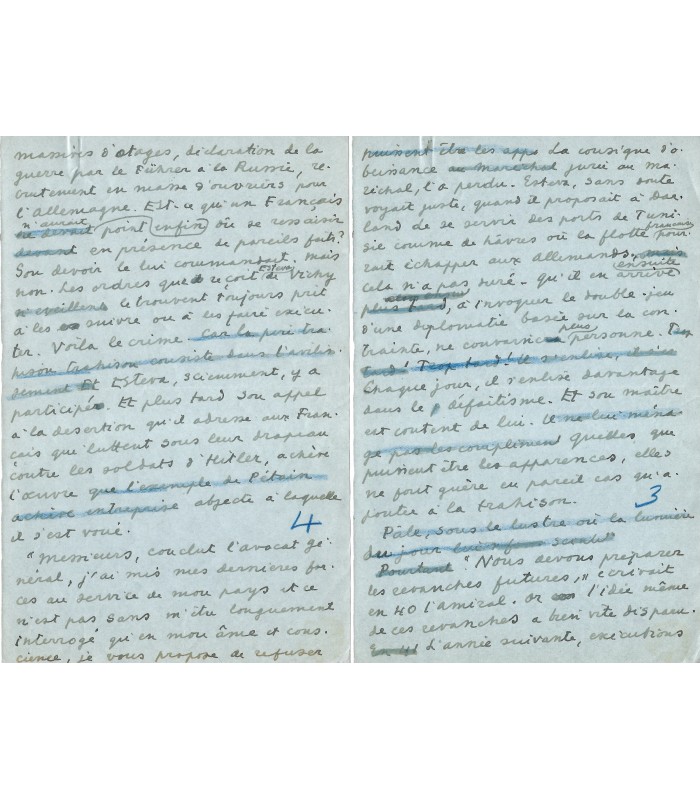 massives d'otages, déclaration de la
guerre par le Führer à la Russie, re-
crutement en masse d'ouvriers pour
l'Allemagne. Est-ce qu'un Français
n'aurait
ne devait point enfin dû se ressaisir
devant en présence de pareils faits?
Son devoir le lui commandait, mais
Esteva
non. Les ordres que reçoit de Vichy
le trouvent toujours prêt
à les suivre ou à les faire exécu-
ter. Voilà le crime. car la pire tra-
hison trahison consiste dans l'avilis-
sement Et Esteva, sciemment, y a
participé. Et plus tard son appel
à la désertion qu'il adresse aux Fran-
çais qui luttent sous leur drapeau
contre les soldats d'Hitler, achève
l'œuvre que l'exemple de Pétain
achève entreprise abjecte à laquelle
il s'est voué.
4
"Messieurs, conclut l'avocat gé-
néral, j'ai mis mes dernières for-
ces au service de mon pays et ce
n'est pas sans m'être longuement
interrogé qu'en mon âme et cons-
cience, je vous propose de refuser
puissent être les apps La consigne d'o-
béissance au maréchal jurée au ma-
réchal, l'a perdu. Esteva, sans doute
voyait juste, quand il proposait à Dar-
land de se servir des ports de Tuni-
française
sie comme de hâvres où la flotte pour-
rait échapper aux allemands, mais
ensuite
cela n'a pas duré - qu'il en arrive
plus tard, à invoquer le double-jeu
d'une diplomatie basée sur la con-
plus
trainte, ne convainc personne. Trop
tard! Trop tard! il s'enlise,
Chaque jour, il s'enlise davantage
dans le défaitisme. Et son maître
est content de lui. il ne lui ména-
ge pas des compliment quelles que
puissent être les apparences, elles
ne font guère en pareil cas qu'a-
jouter à la trahison.
3
Pâle, sous le lustre où la lumière
du jour lui
Pourtant "Nous devons préparer
les revanches futures," écrivait
en 40 l'amiral. Or l'idée même
de ces revanches a bien vite disparu.
En 41 L'année suivante, exécutions